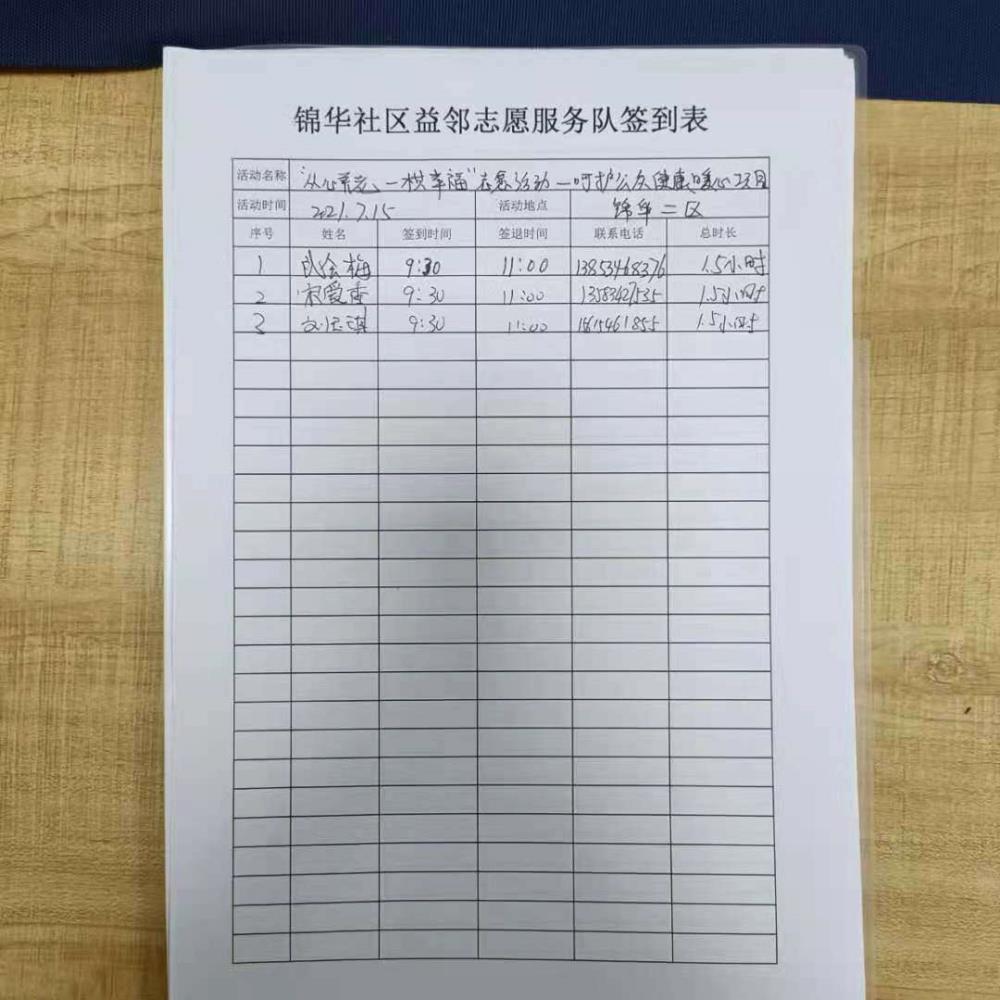 锦华社区益邻志愿服务队签到表
活动名称 "从心养老、一拱幸福"志愿活动—呵护公众健康,暖心项目
活动时间 2021.7.15 活动地点 锦华二区
序号 姓名 签到时间 签退时间 联系电话 总时长
1 9:30 11:00 13853468376 1.5小时
2 宋爱香 9:30 11:00 1.5小时
3 9:30 11:00 1.5小时